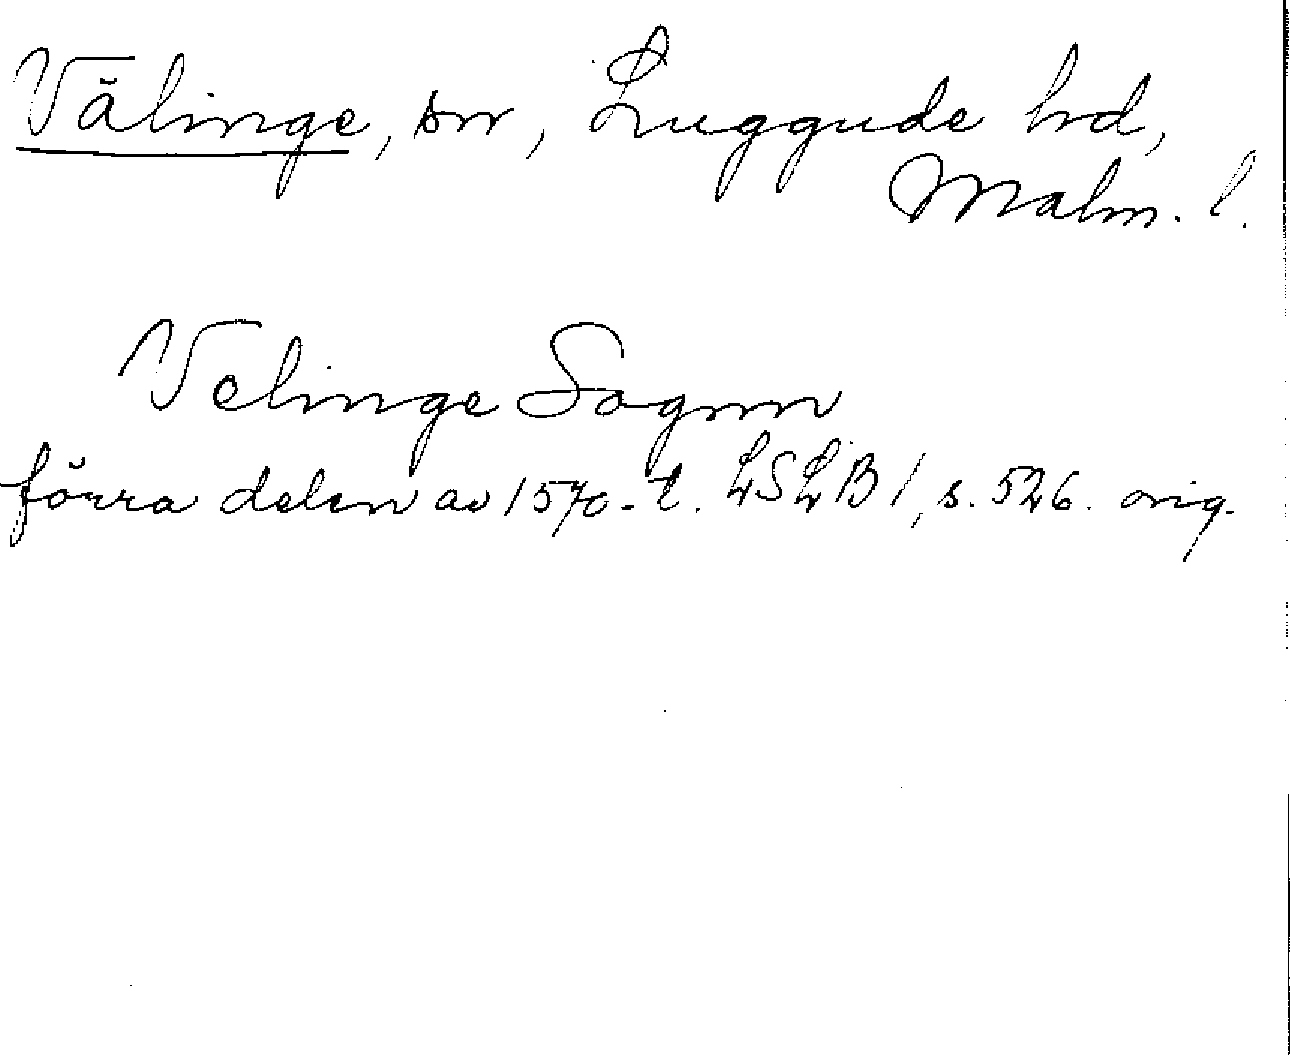 Välinge, sn, Luggude hd,
Malm. l.
Velinge Sognn
förra delen av 1570-t. LSLB 1, s. 526. orig.